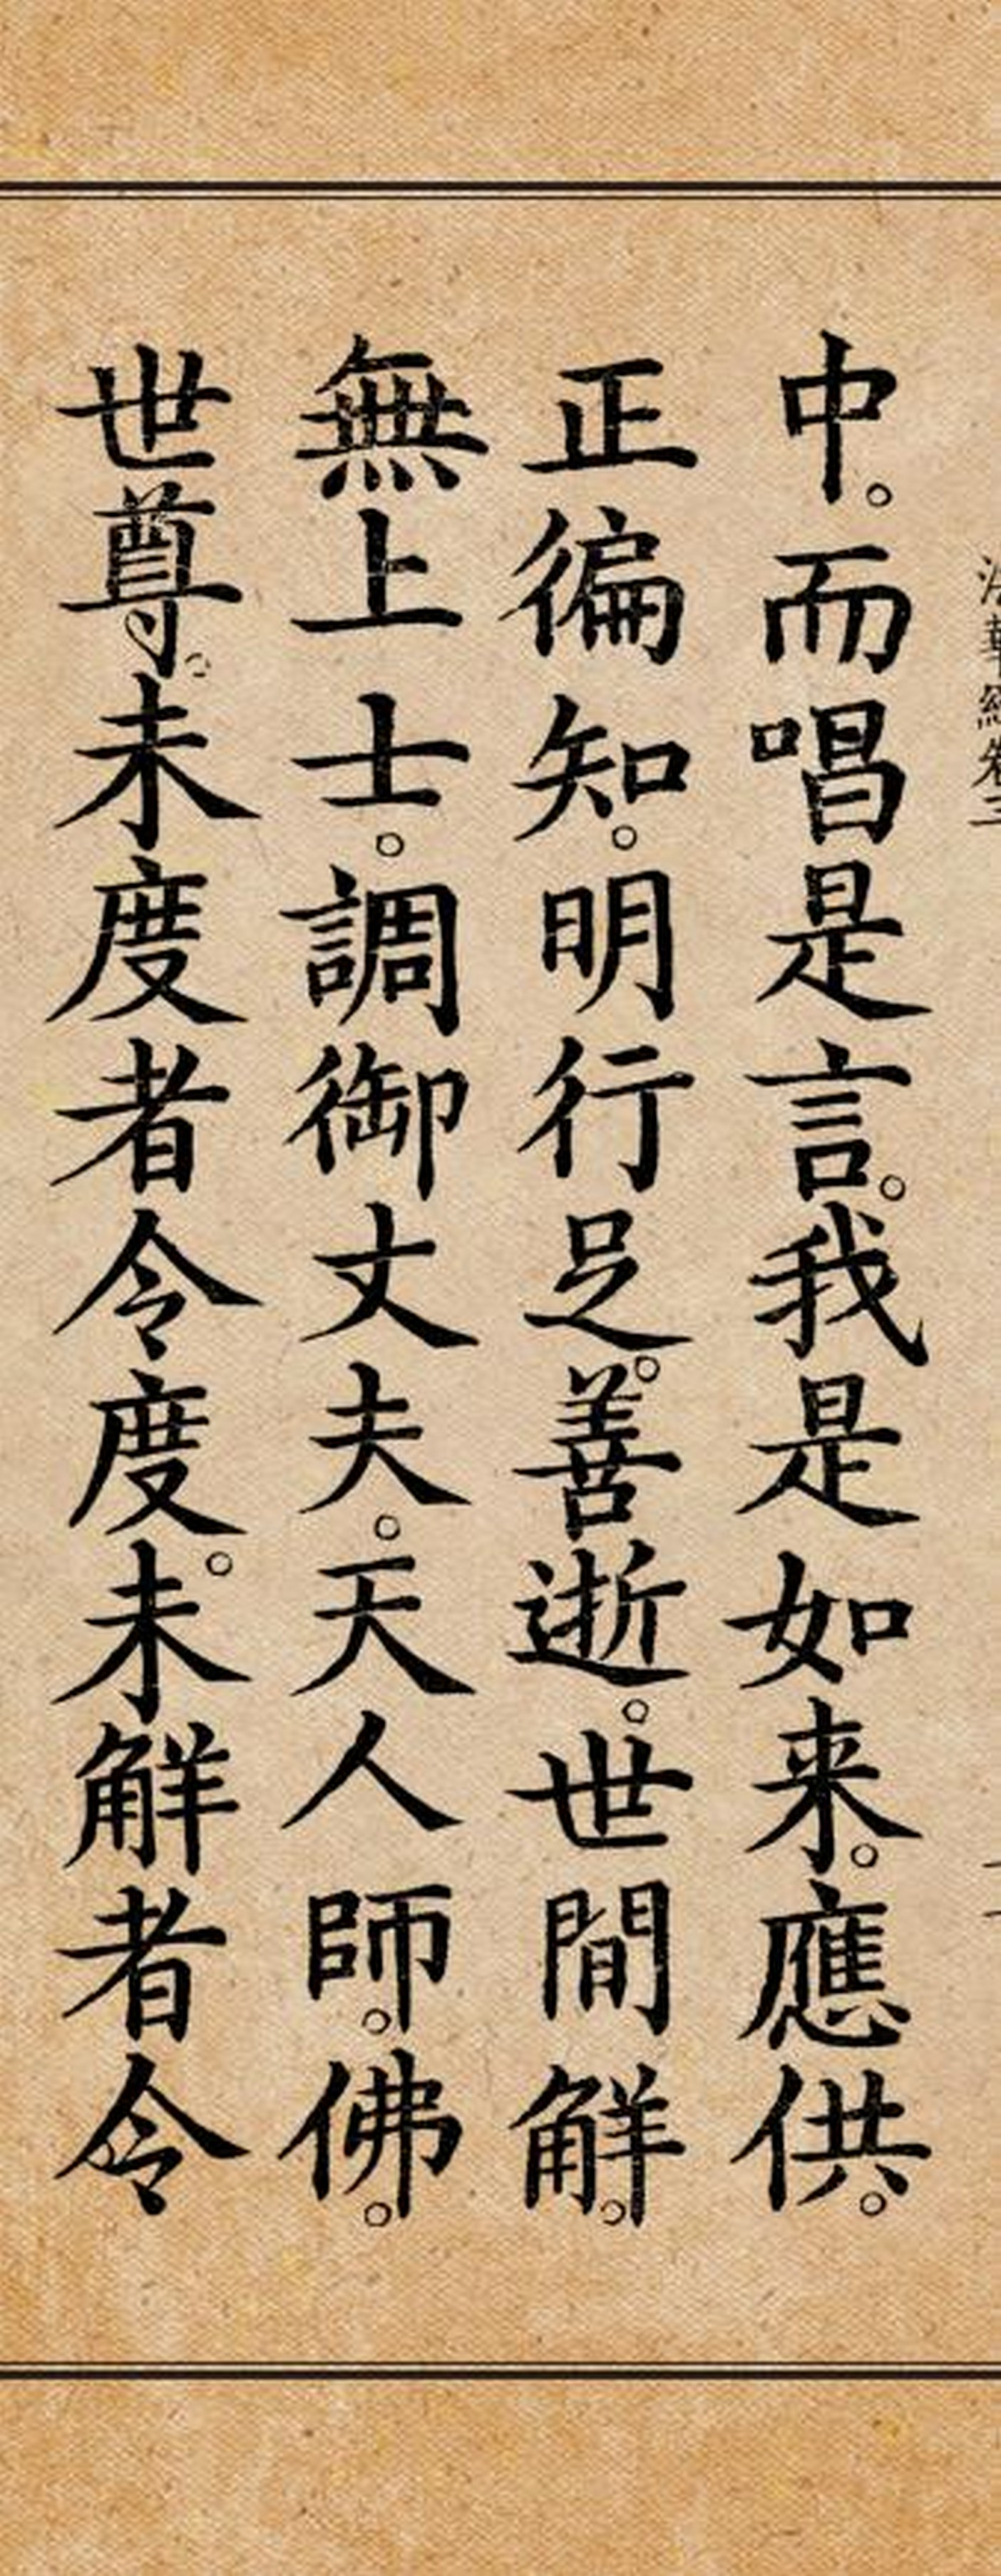 法華經卷三
中。而唱是言。我是如来。應供。
正徧知。明行足。善逝。世間解。
無上士。調御丈夫。天人師。佛。
世尊。未度者令度。未解者令